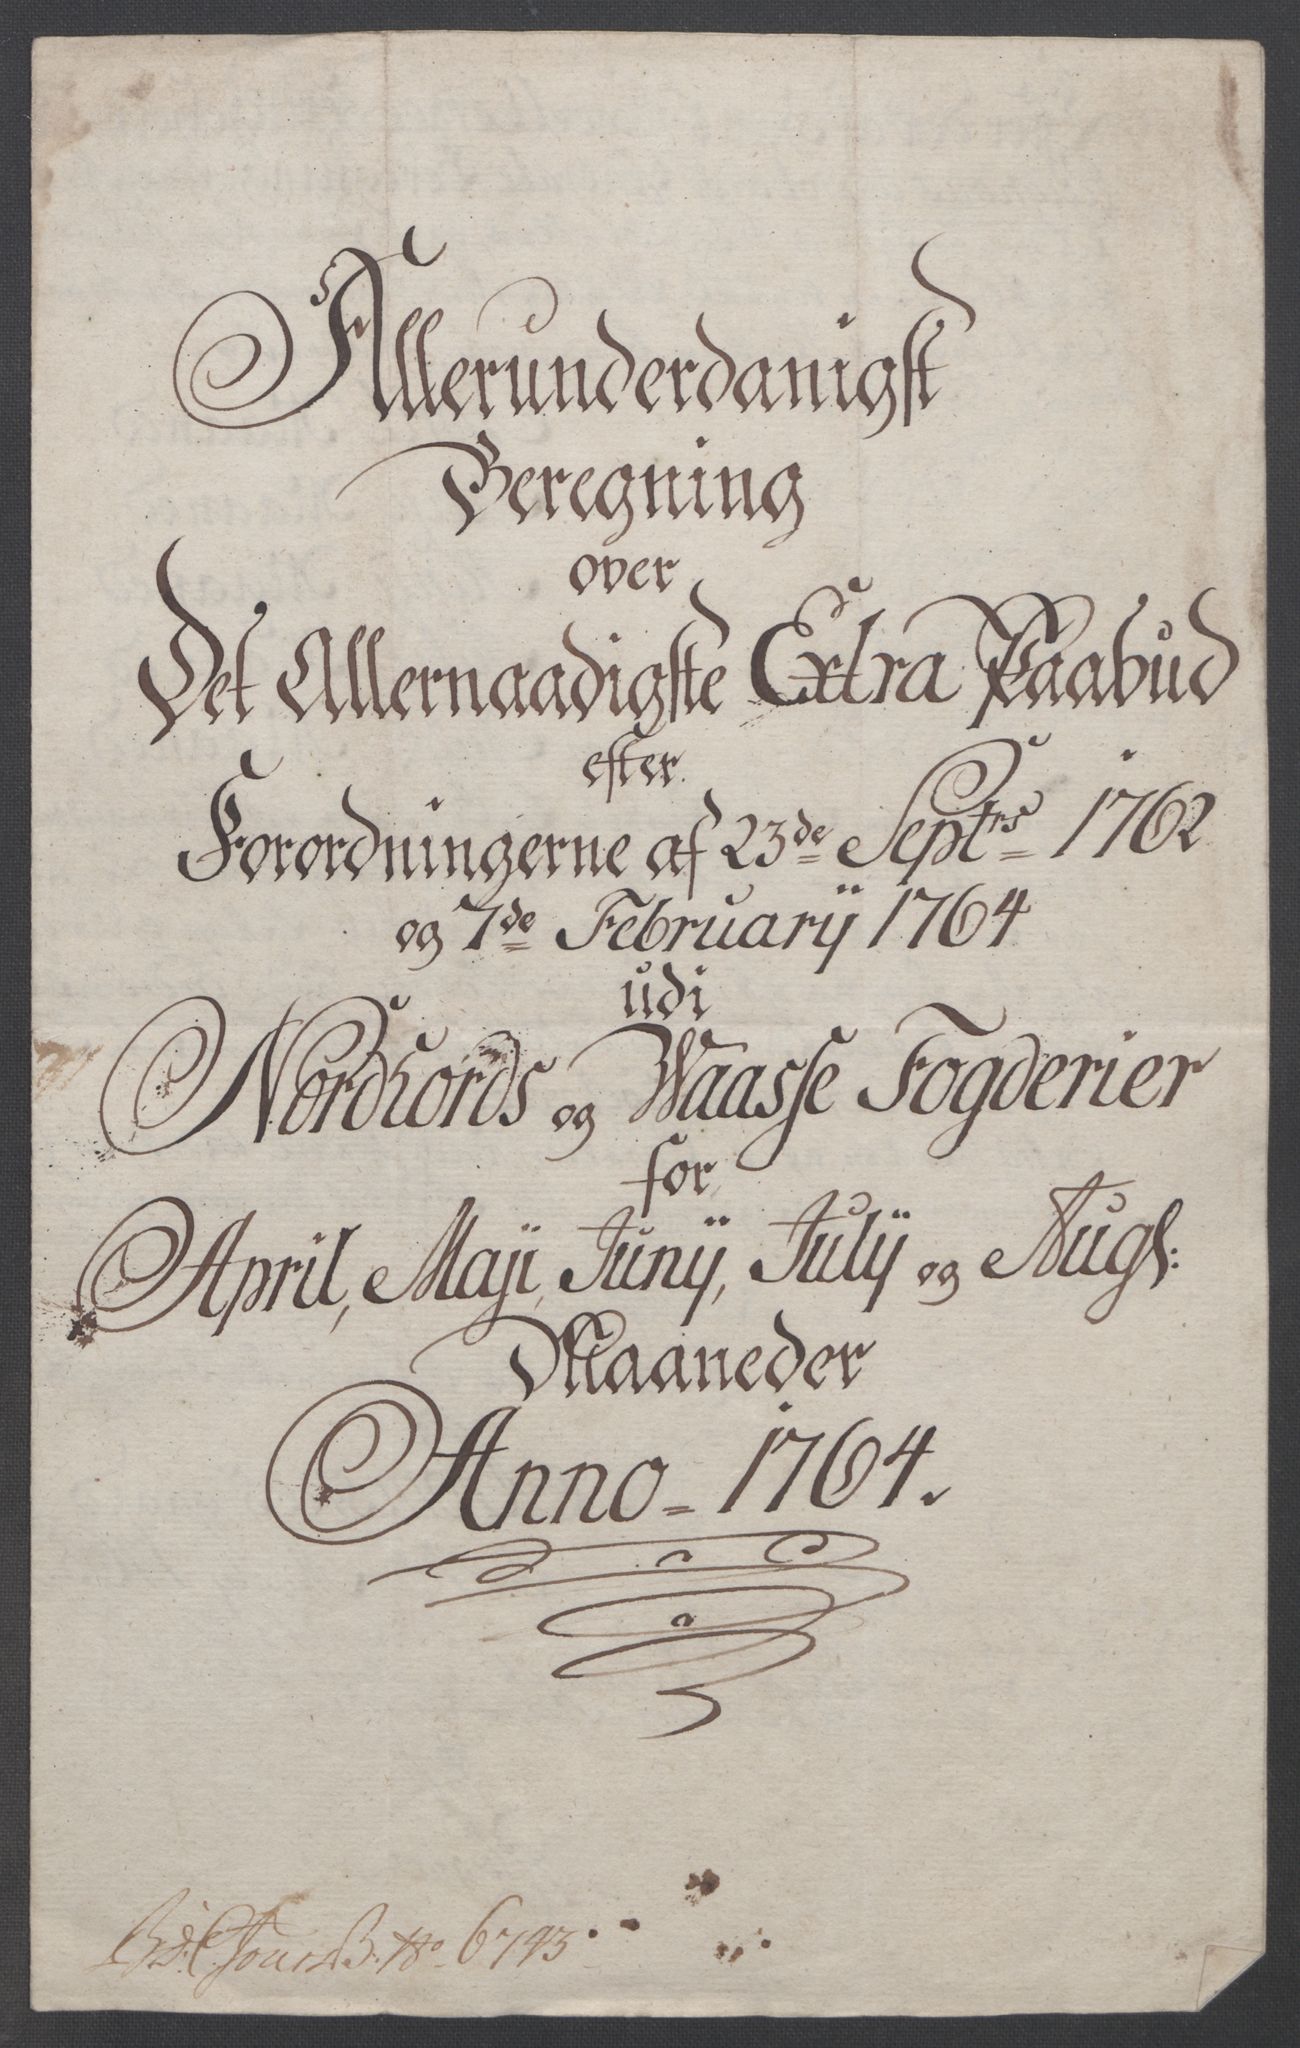 Allerunderdanigst
Beregning
over
Det Allernaadigste Extra Paabud
efter
Forordningerne af 23de Septrs 1762
og 7de Februarij 1764
udi
Nordhords og Waasse Fogderier
for
April, Maji, Junij, Julij og Augs:
Maaneder
Anno 1764.
No 6743